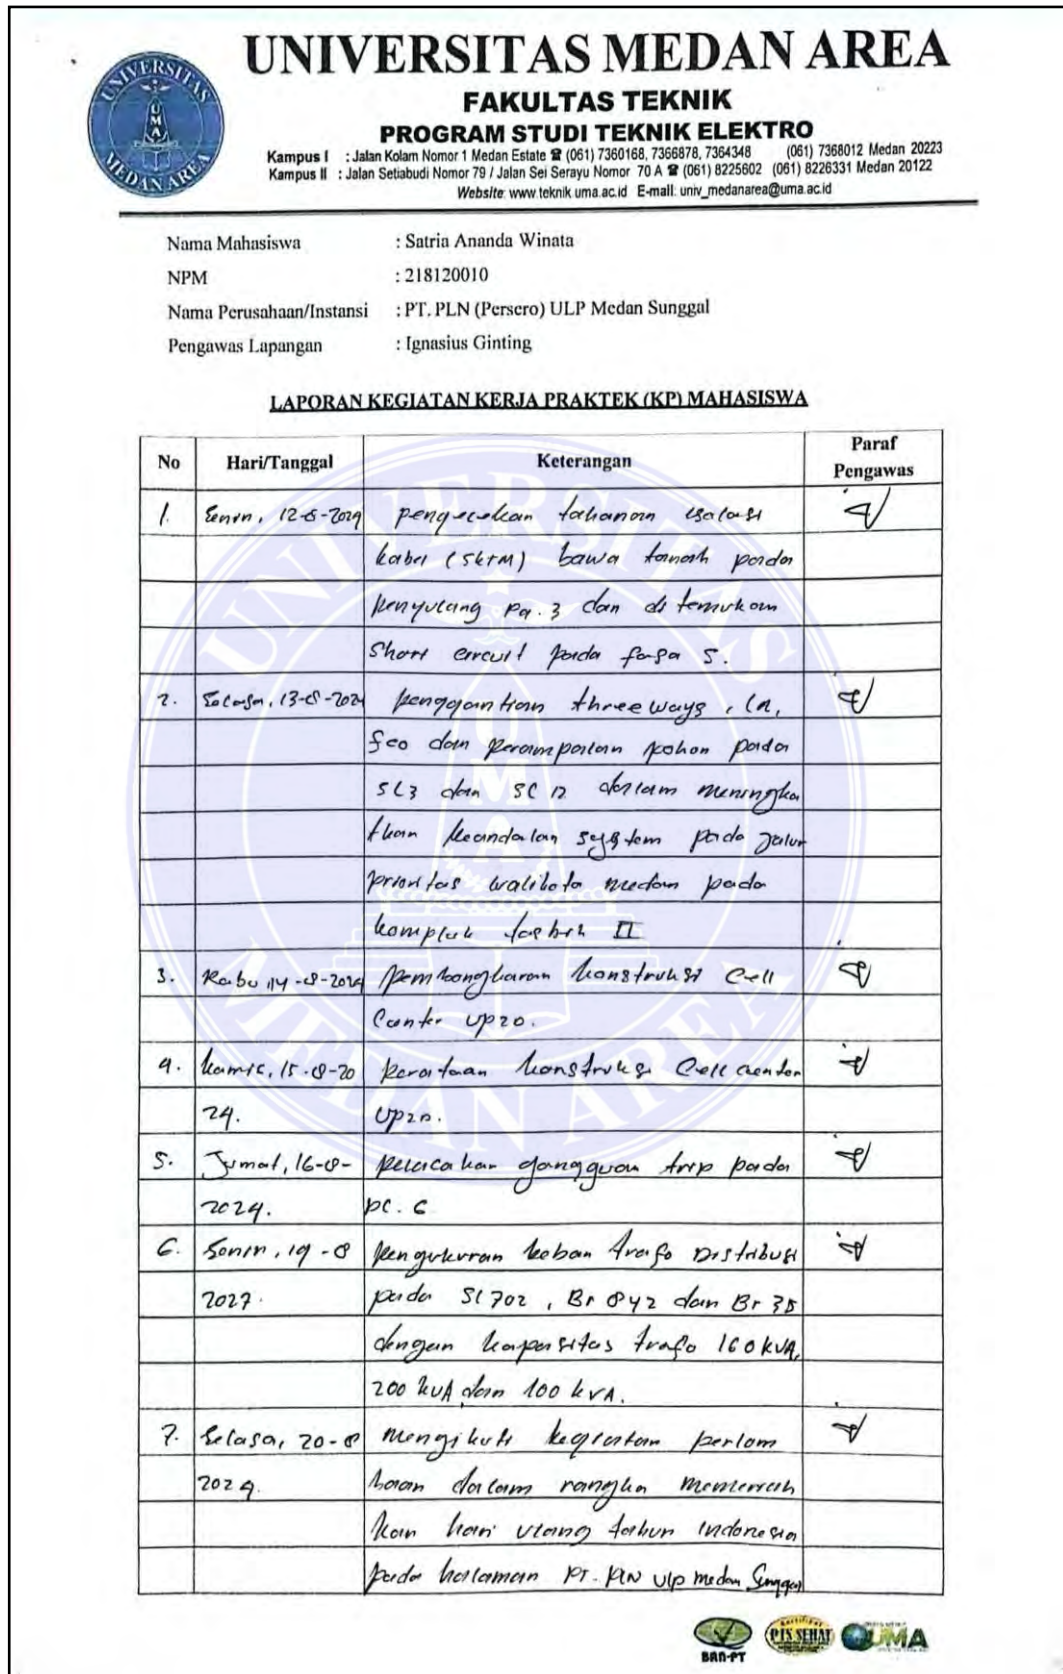 UNIVERSITAS MEDAN AREA
FAKULTAS TEKNIK
PROGRAM STUDI TEKNIK ELEKTRO
Kampus I : Jalan Kolam Nomor 1 Medan Estate ☎ (061) 7360168, 7366878, 7364348 (061) 7368012 Medan 20223
Kampus II : Jalan Setiabudi Nomor 79 / Jalan Sei Serayu Nomor 70 A ☎ (061) 8225602 (061) 8226331 Medan 20122
Website: www.teknik.uma.ac.id E-mail: univ_medanarea@uma.ac.id
UNIVERSITAS MEDAN AREA
UMA
Nama Mahasiswa : Satria Ananda Winata
NPM : 218120010
Nama Perusahaan/Instansi : PT. PLN (Persero) ULP Medan Sunggal
Pengawas Lapangan : Ignasius Ginting
LAPORAN KEGIATAN KERJA PRAKTEK (KP) MAHASISWA
No Hari/Tanggal Keterangan Paraf Pengawas
1. Senin, 12-8-2024 pengecekan tahanan isolasi
kabel (SKTM) bawa tanah pada
penyulang Pa.3 dan di temukan
Short circuit pada fasa S.
2. Selasa, 13-8-2024 penggantian three ways, LA,
fco dan perampalan pohon pada
SL3 dan SC 12 dalam meningka
tkan keandalan system pada jalur
prioritas walikota medan pada
komplek tasbih II
3. Rabu, 14-8-2024 pembongkaran konstruksi Cell
Center UP20.
4. Kamis, 15-8-20 konstruksi Cell
24. UP20.
5. Jumat, 16-8- pelacakan gangguan trip pada
2024. pc. 6
6. Senin, 19-8 pengukuran beban trafo Distribusi
pada SL702, Br 842 dan Br 35
dengan kapasitas trafo 160 kVA,
200 kVA dan 100 kVA.
7. Selasa, 20-8 mengikuti kegiatan perlom
2024. baan dalam rangka memeriah
kan hari ulang tahun indonesia
pada halaman PT. PLN ulp medan Sunggal
UNIVERSITAS MEDAN AREA
UMA
BAN-PT
PTS SEHAT
UMA